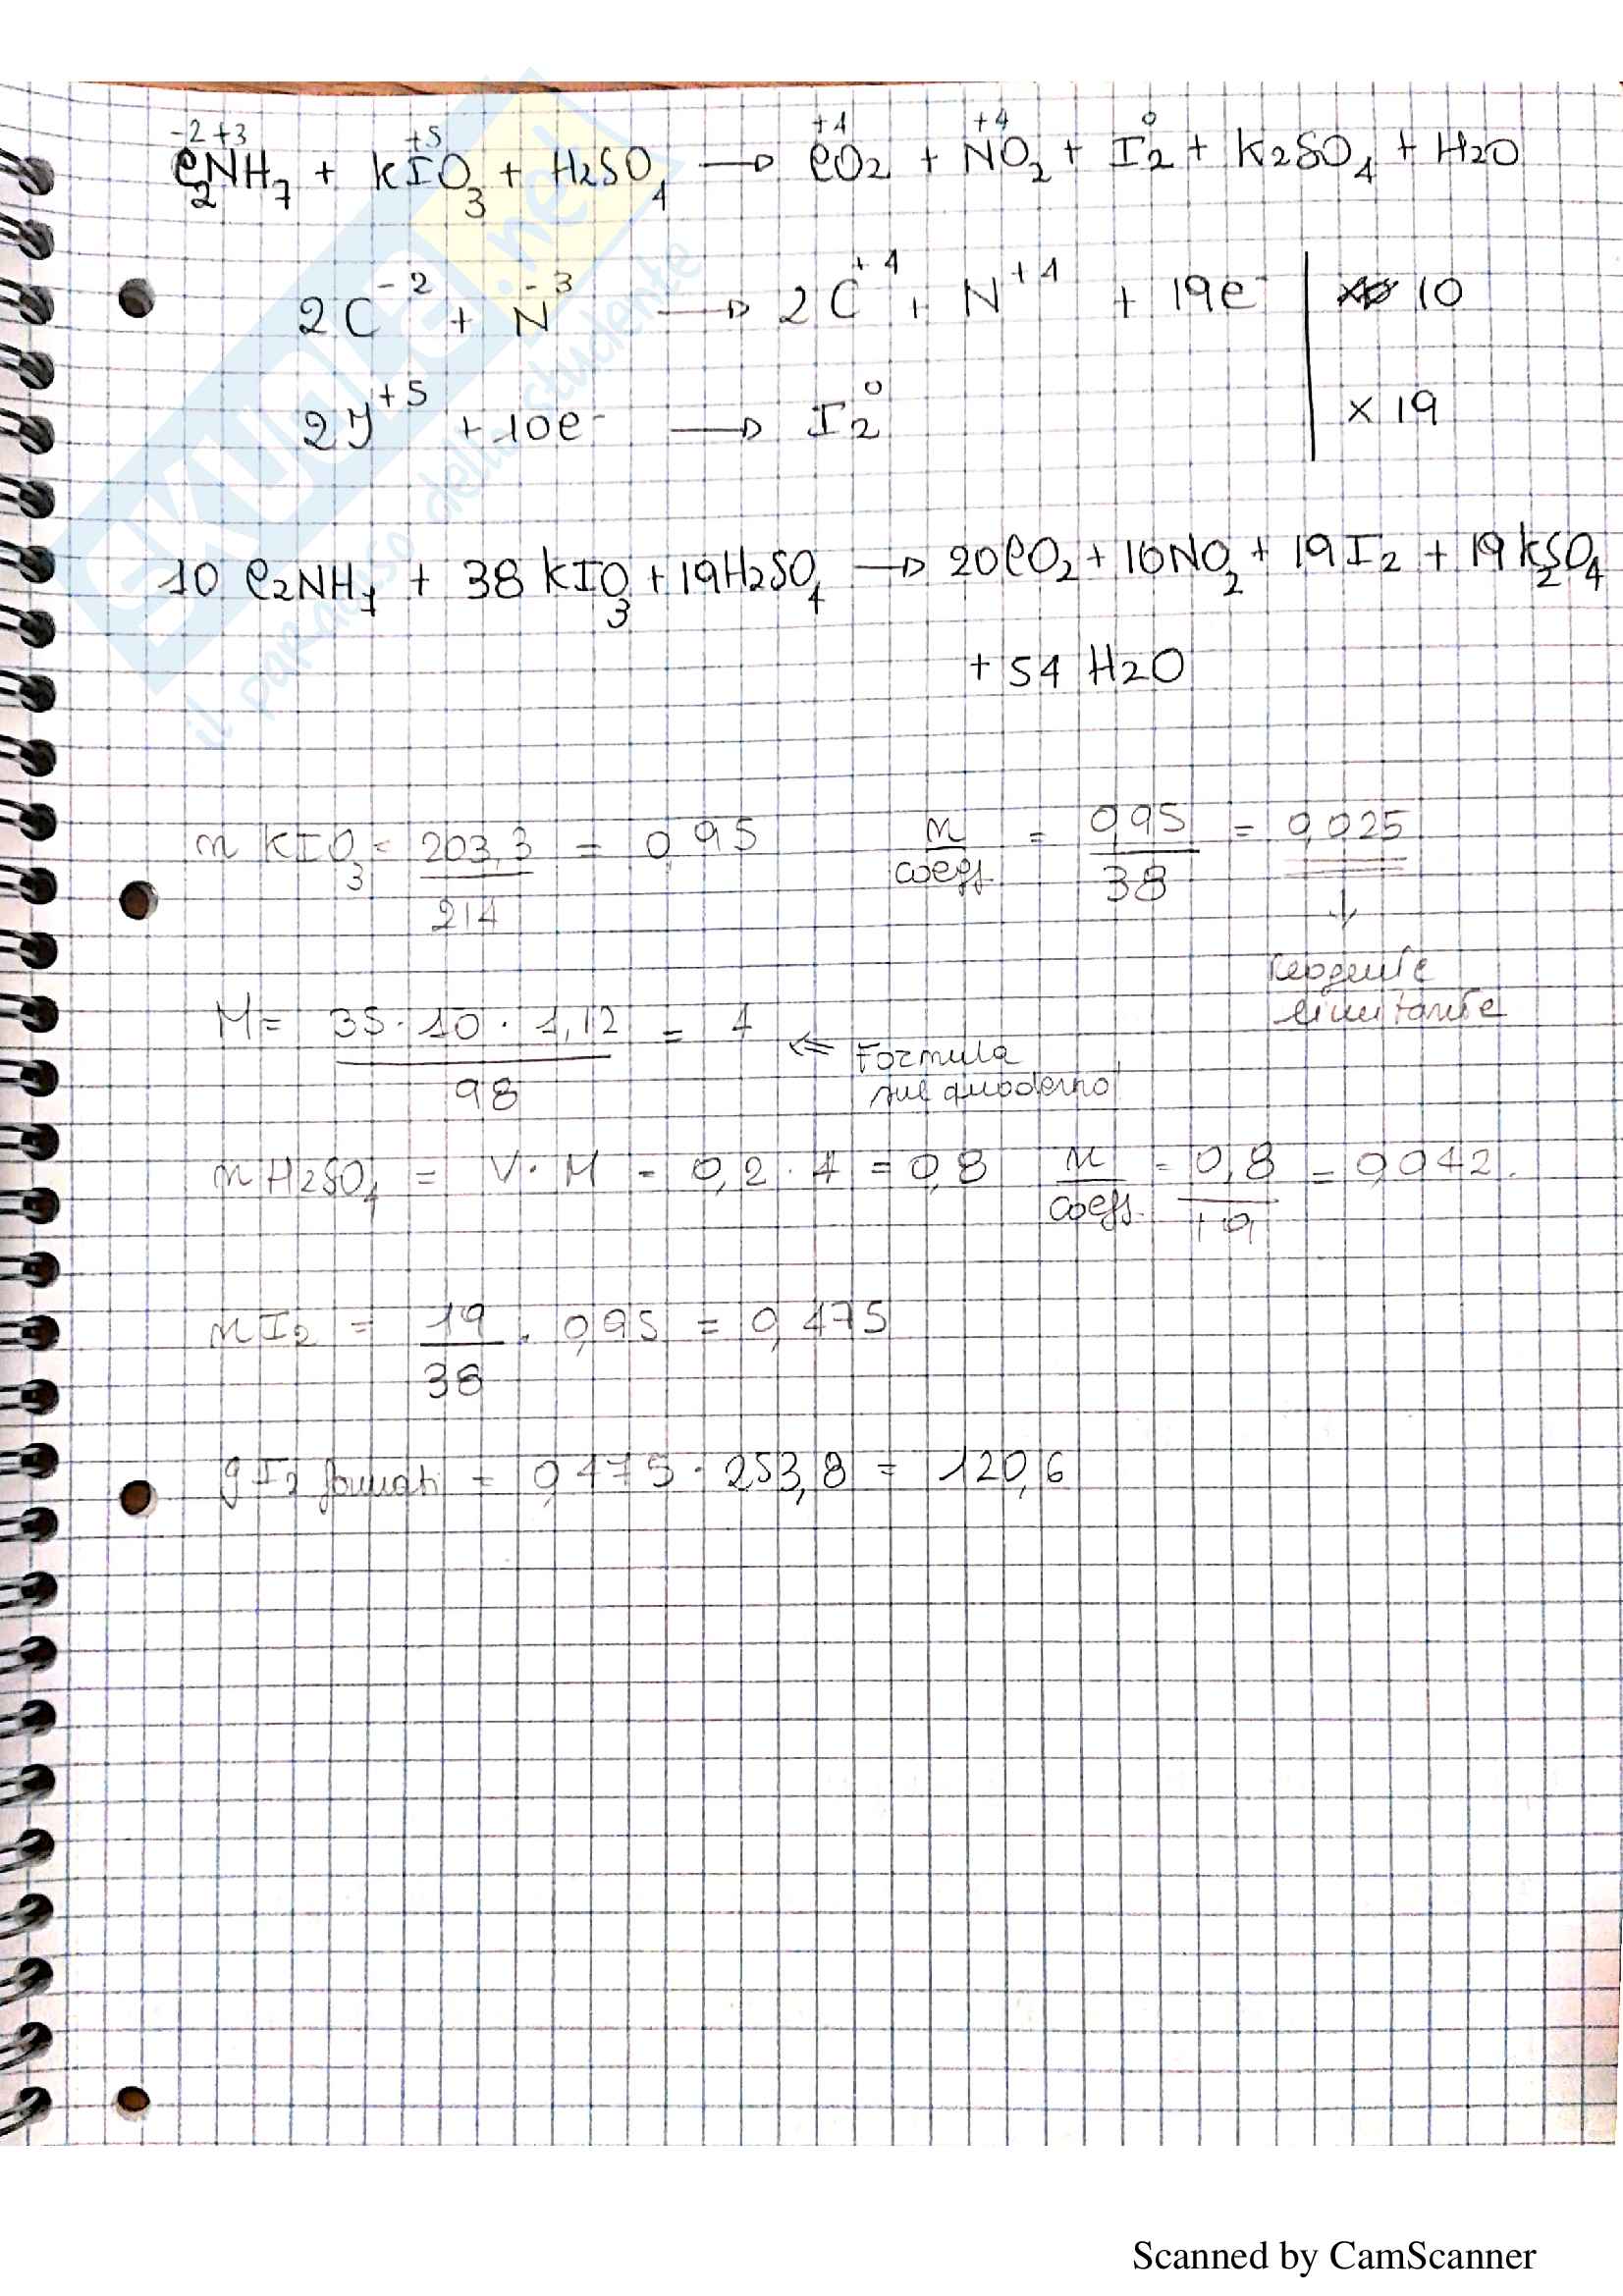 -2 +3 +5 +4 +4 0
C2NH7 + KIO3 + H2SO4 → CO2 + NO2 + I2 + K2SO4 + H2O
2C-2 + N-3 → 2C+4 + N+4 + 19e- | 10
2I+5 + 10e- → I2 0 | x 19
10 C2NH7 + 38 KIO3 + 19H2SO4 → 20CO2 + 10NO2 + 19I2 + 19K2SO4
+ 54 H2O
n KIO3 = 203,3 / 214 = 0,95 n / coeff. = 0,95 / 38 = 0,025
↓
reagente
limitante
M = 35 · 10 · 1,12 / 98 = 4 ⇐ Formula
sul quaderno
n H2SO4 = V · M = 0,2 · 4 = 0,8 n / coeff. = 0,8 / 19 = 0,042.
n I2 = 19 / 38 · 0,95 = 0,475
g I2 formati = 0,475 · 253,8 = 120,6
skuola.net
il paradiso dello studente
Scanned by CamScanner